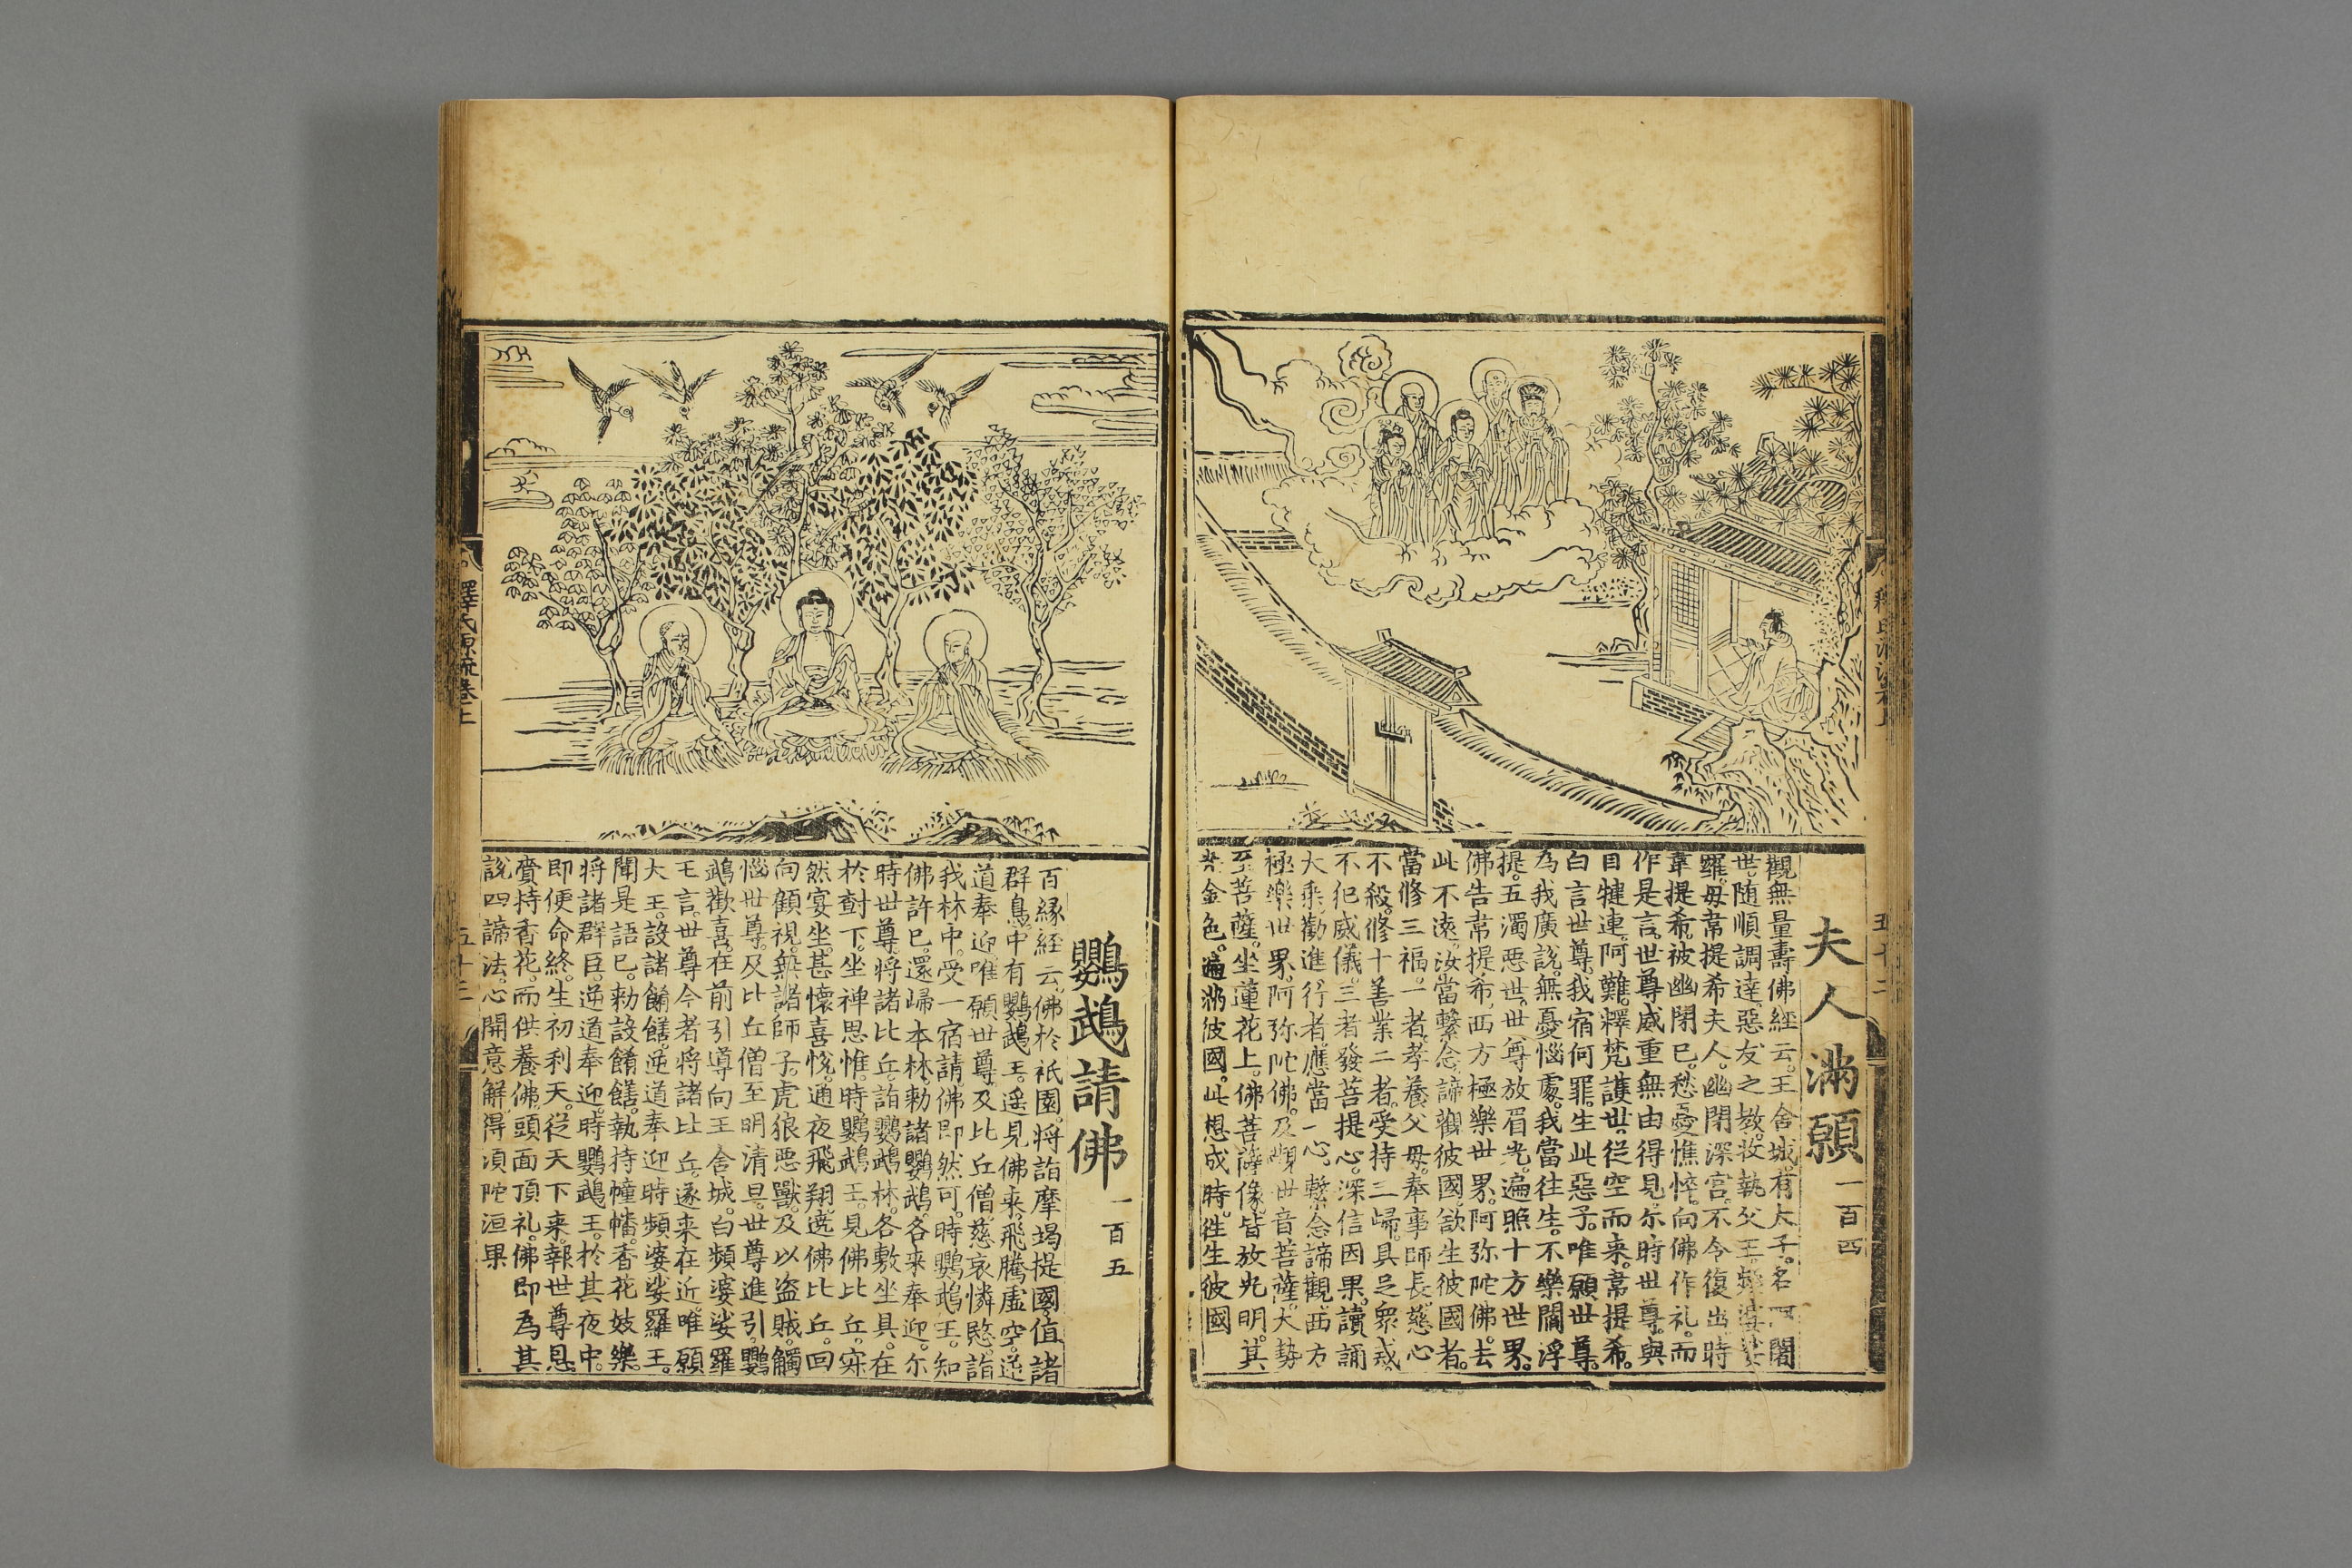 夫人滿願 一百四
觀無量壽佛經云。王舍城有太子。名阿闍
世。随順調達。惡友之教。收執父王頻婆娑
羅。毋韋提希夫人。幽閉深宫。不令復出。時
韋提希。被幽閉已。愁憂憔悴。向佛作礼。而
作是言。世尊威重無由得見。尓時世尊。與
目犍連。阿難。釋梵護世。從空而来。韋提希。
白言世尊。我宿何罪。生此惡子。唯願世尊。
為我廣說。無憂惱處。我當往生。不樂閻浮
提。五濁悪世。世尊放眉光。遍照十方世界。
佛告韋提希。西方極樂世界。阿弥陀佛。去
此不遠。汝當繫念。諦觀彼國。欲生彼國者。
當修三福。一者。孝養父毋。奉事師長。慈心
不殺。修十善業。二者。受持三歸。具足衆戒。
不犯威儀。三者。發菩提心。深信因果。讀誦
大乘。勸進行者。應當一心。繫念諦觀。西方
極樂世界。阿弥陀佛。及觀世音菩薩。大勢
至菩薩。坐蓮花上。佛菩薩像。皆放光明。其
光金色。遍滿彼國。此想成時。徃生彼國
釋氏源流卷上
鸚鵡請佛 一百五
百緣經云。佛於祇園。将詣摩竭提國。值諸
群鳥。中有鸚鵡王。遥見佛来。飛騰虚空。逆
道奉迎。唯願世尊。及比丘僧。慈哀憐愍。詣
我林中。受一宿請。佛即然可。時鸚鵡王。知
佛許已。還歸本林。勅諸鸚鵡。各来奉迎。尓
時世尊。将諸比丘。詣鸚鵡林。各敷坐具。在
於樹下。坐禅思惟。時鸚鵡王。見佛比丘。寂
然宴坐。甚懷喜悦。通夜飛翔。遶佛比丘。回
向顧視。無諸師子。虎狼悪獸。及以盗賊。觸
惱世尊。及比丘僧。至明清旦。世尊進引。鸚
鵡歡喜。在前引導。向王舍城。白頻婆娑羅
王言。世尊今者。将諸比丘。遂来在近。唯願
大王。設諸餚饍。逆道奉迎。時頻婆娑羅王。
聞是語已。勅設餚饍。執持幢幡。香花妓樂。
将諸群臣。逆道奉迎。時鸚鵡王。於其夜中。
即便命終。生初利天。從天下来。報世尊恩。
賫持香花。而供養佛。頭面頂礼。佛即為其
說四諦法。心開意解。得湏陀洹果
釋氏源流卷上
五十三